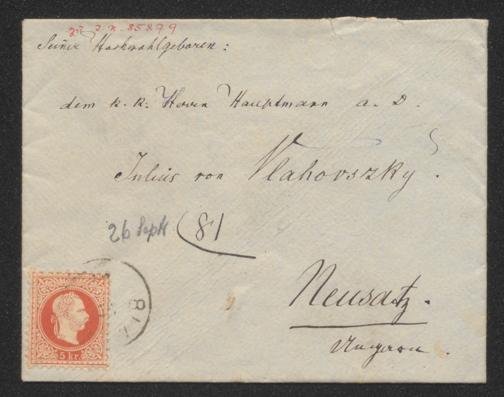 zu J. N. 85879
Seiner Hochwohlgeboren:
dem k. k. Herrn Hauptmann a. D.
Julius von Vlahovszky.
26 Sept (81
Neusatz.
Ungarn.
5 kr.